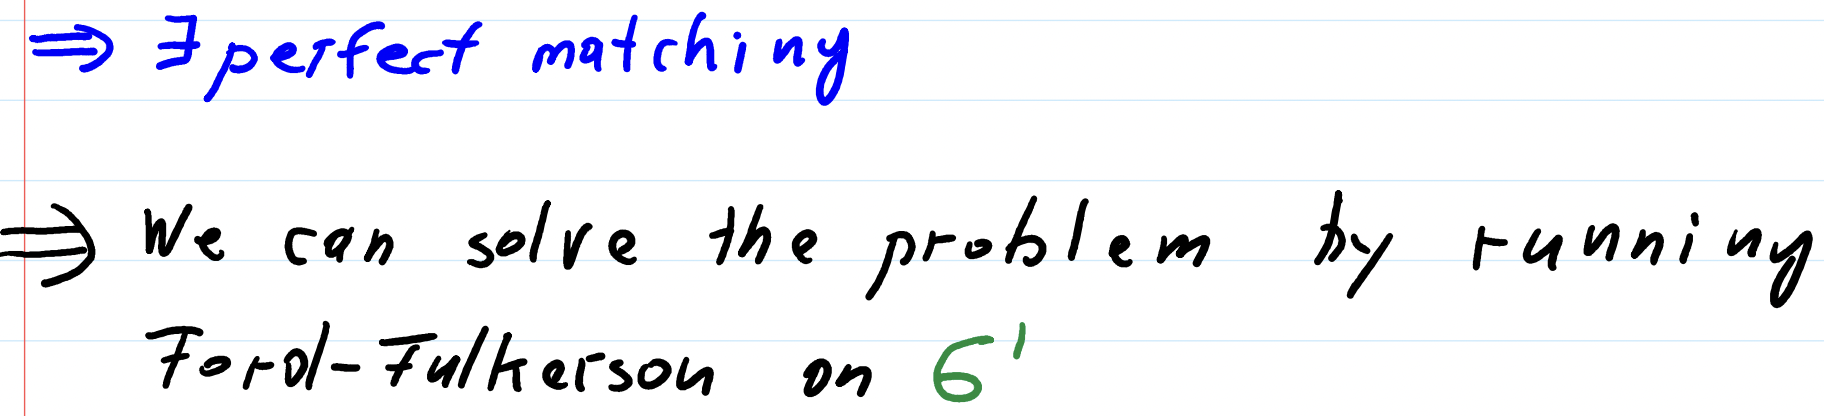 ⇒ ∃ perfect matching
⇒ We can solve the problem by running
Ford-Fulkerson on G'